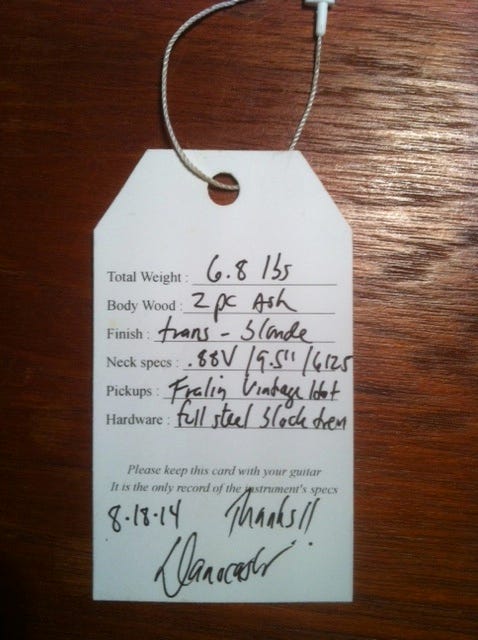 Total Weight : 6.8 lbs
Body Wood : 2 pc Ash
Finish : trans - blonde
Neck specs : .88V / 9.5" / 6125
Pickups : Fralin Vintage Hot
Hardware : full steel block trem
Please keep this card with your guitar
It is the only record of the instrument's specs
8.18.14 Thanks!!
Danocaster